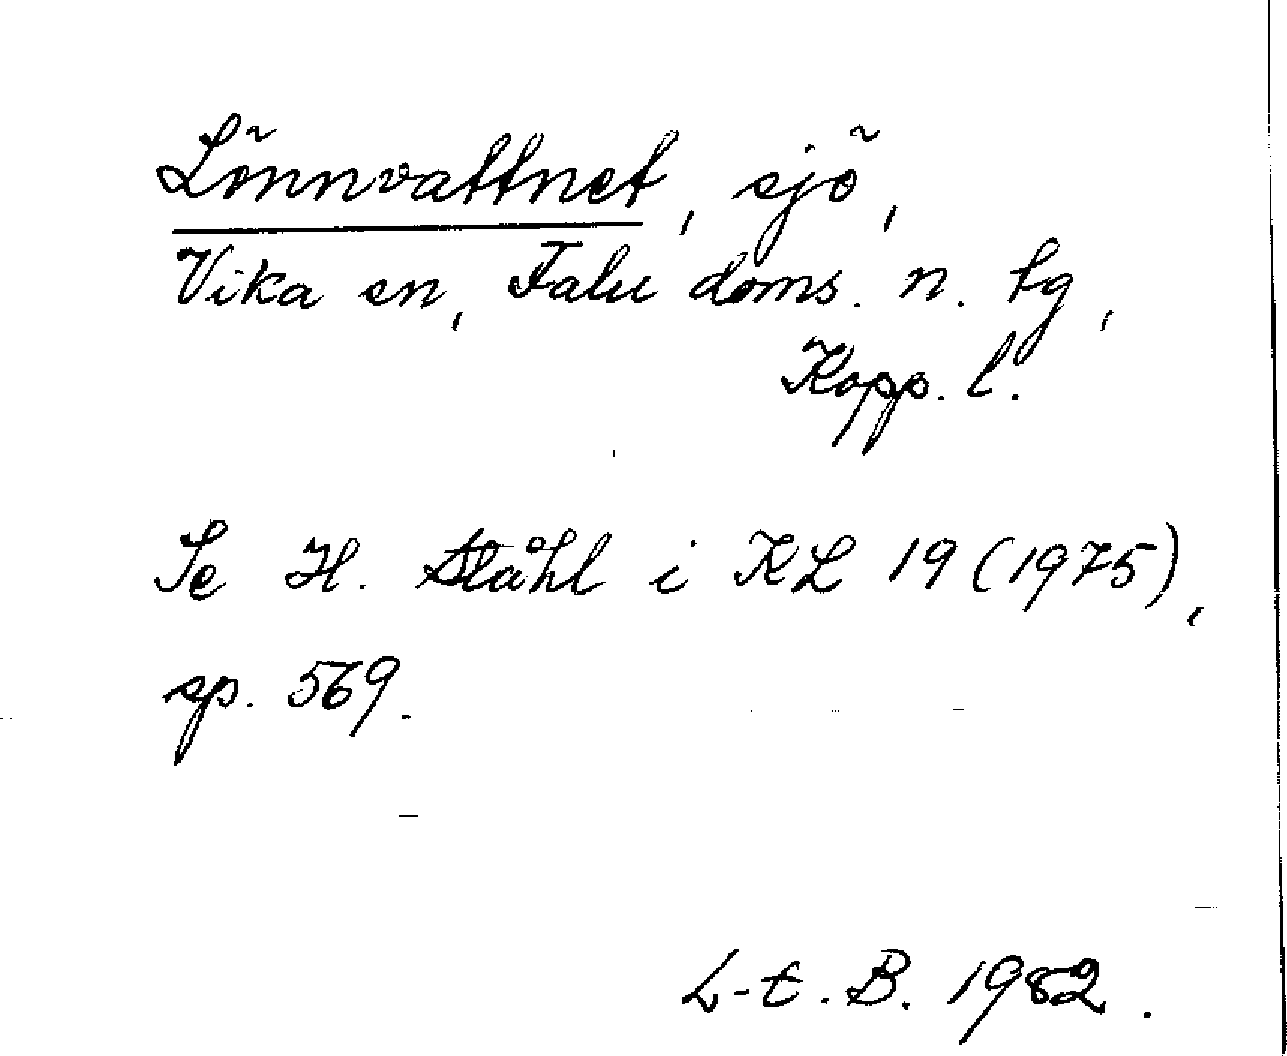 Lönnvattnet, sjö,
Vika sn, Falu doms. n. tg,
Kopp. l.
Se H. Ståhl i KL 19 (1975),
sp. 569.
L-E. B. 1982.